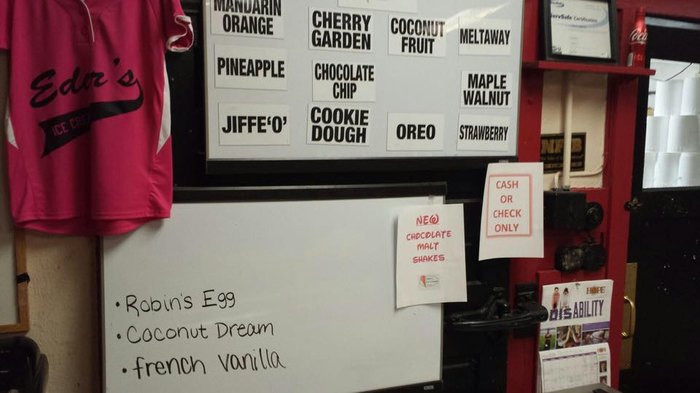 MANDARIN
ORANGE
CHERRY
GARDEN
COCONUT
FRUIT
MELTAWAY
PINEAPPLE
CHOCOLATE
CHIP
MAPLE
WALNUT
JIFFE'O'
COOKIE
DOUGH
OREO
STRAWBERRY
ServSafe Certification
Eder's
ICE CREAM
NEW
CHOCOLATE
MALT
SHAKES
CASH
OR
CHECK
ONLY
• Robin's Egg
• Coconut Dream
• french vanilla
HOPE
DISABILITY